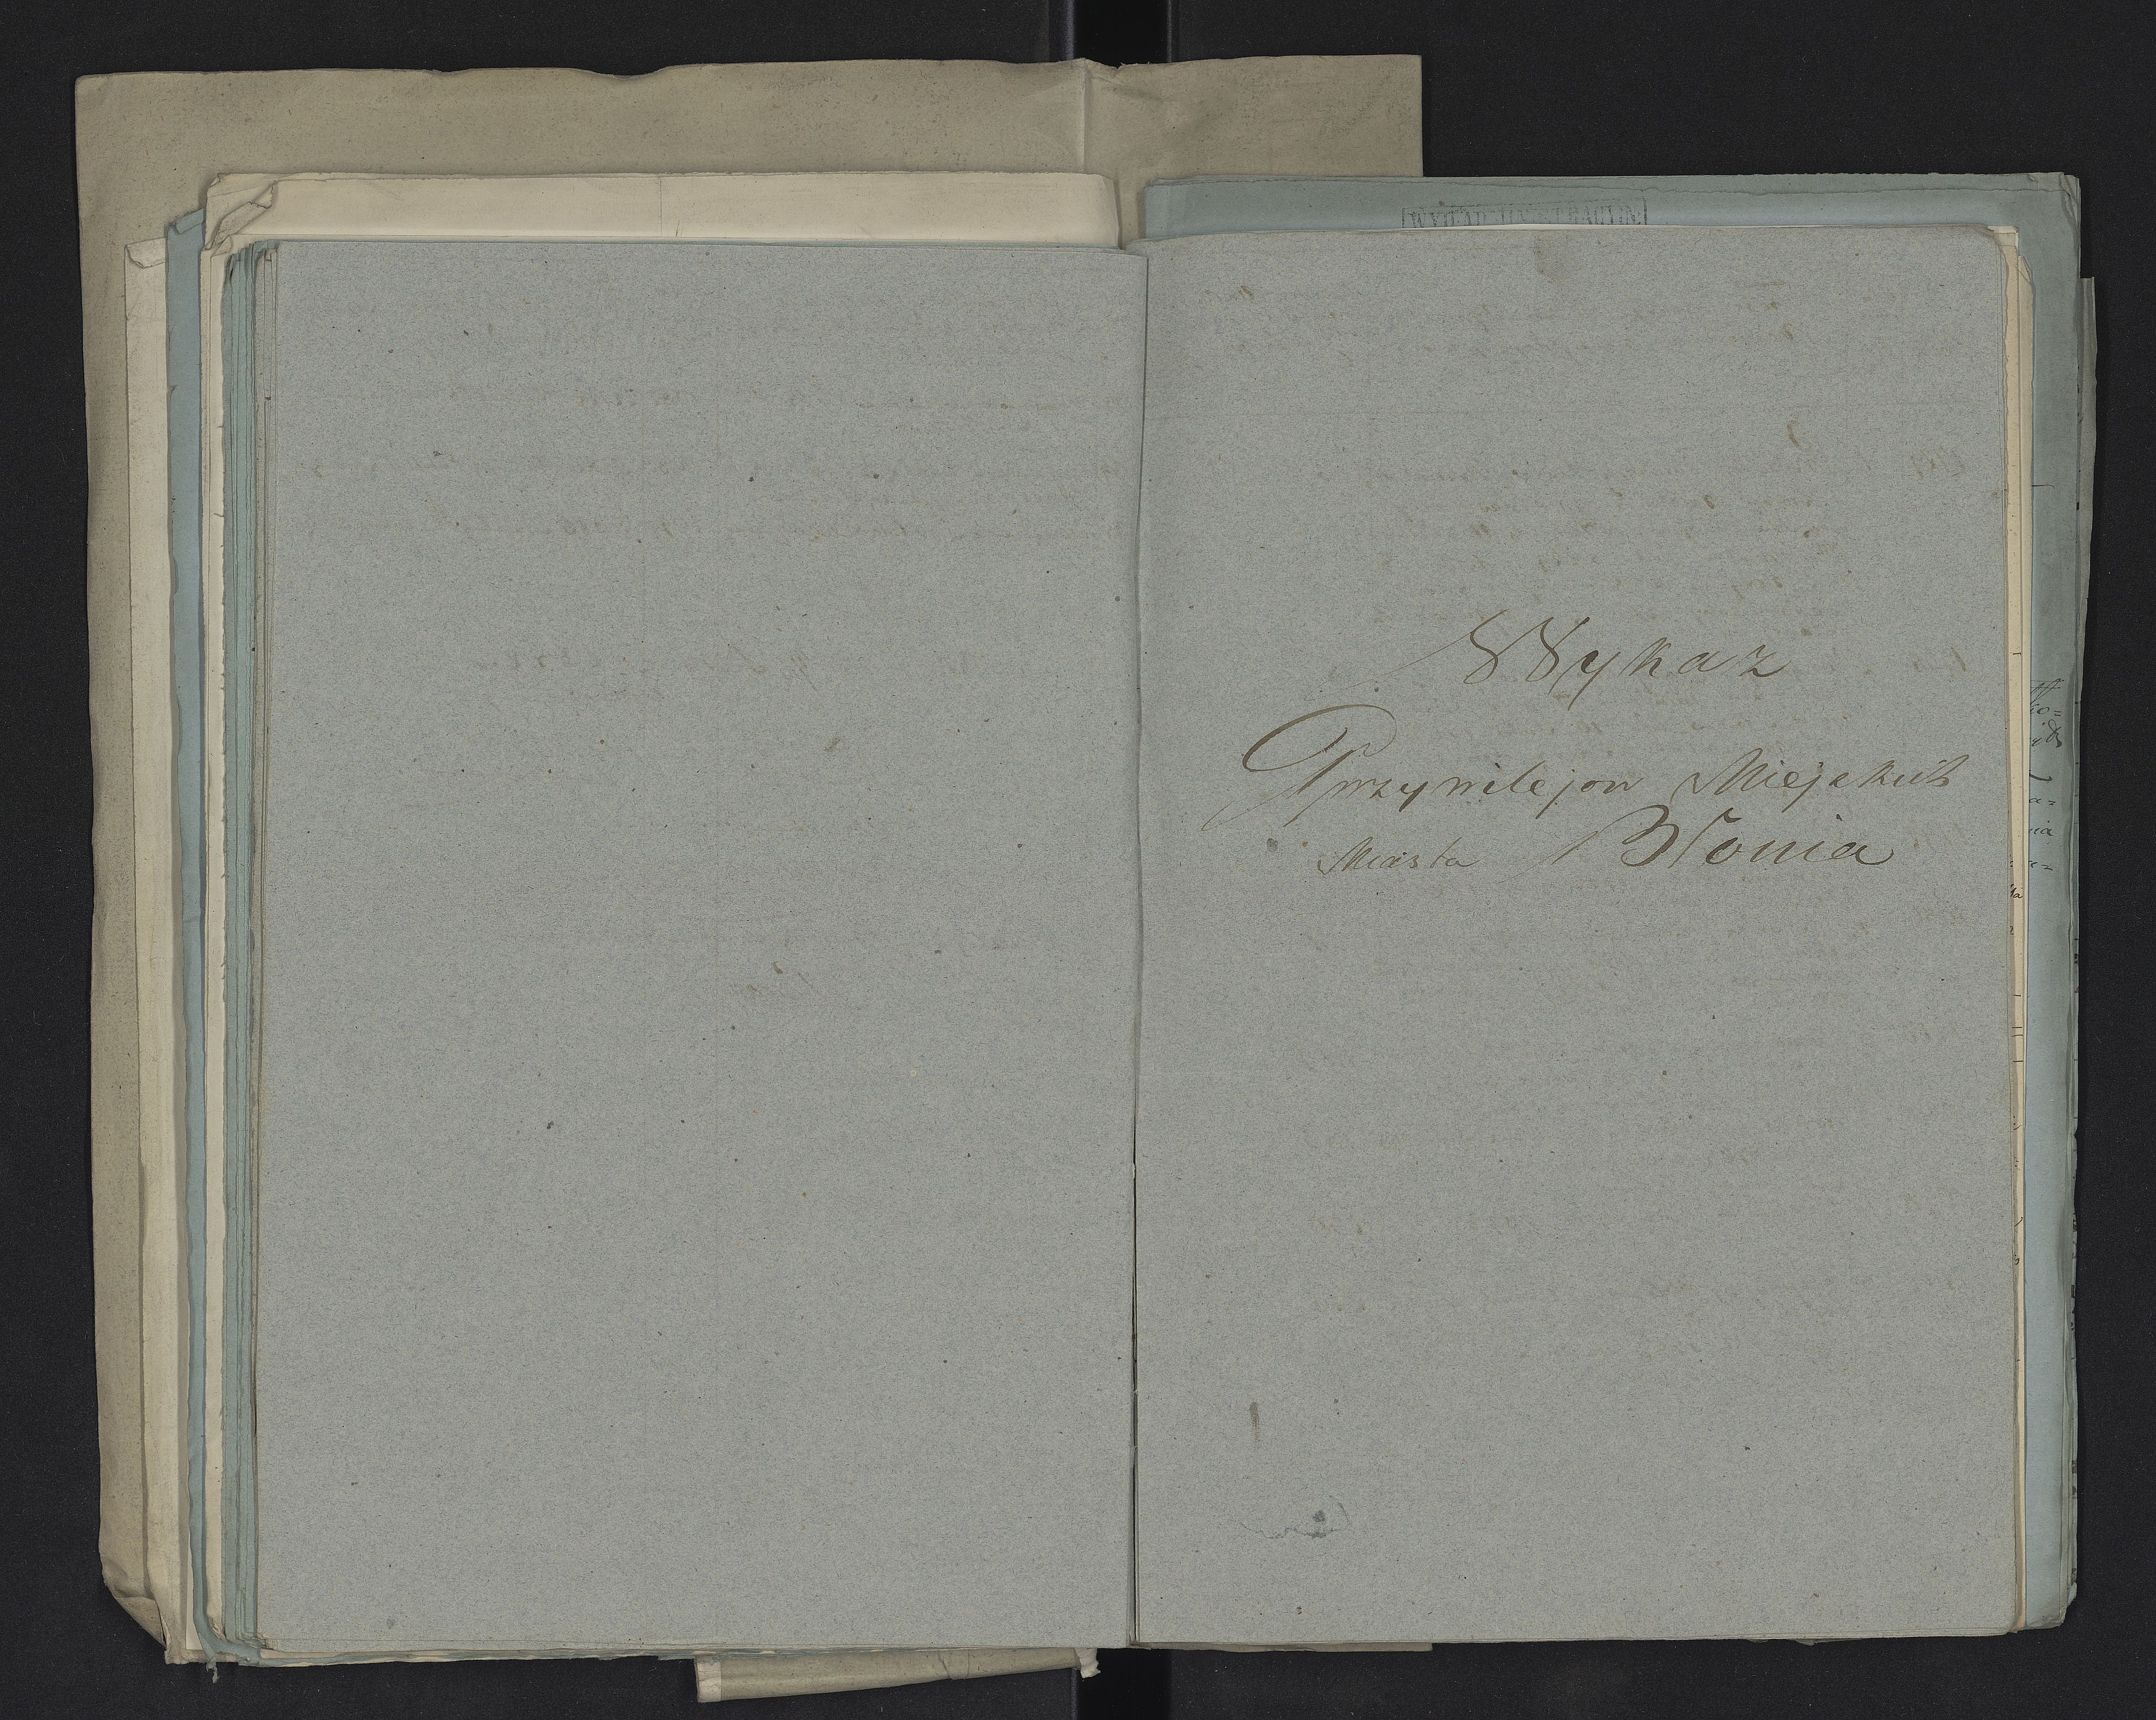 Wykaz
Przywilejow Miejskich
Miasta Błonia